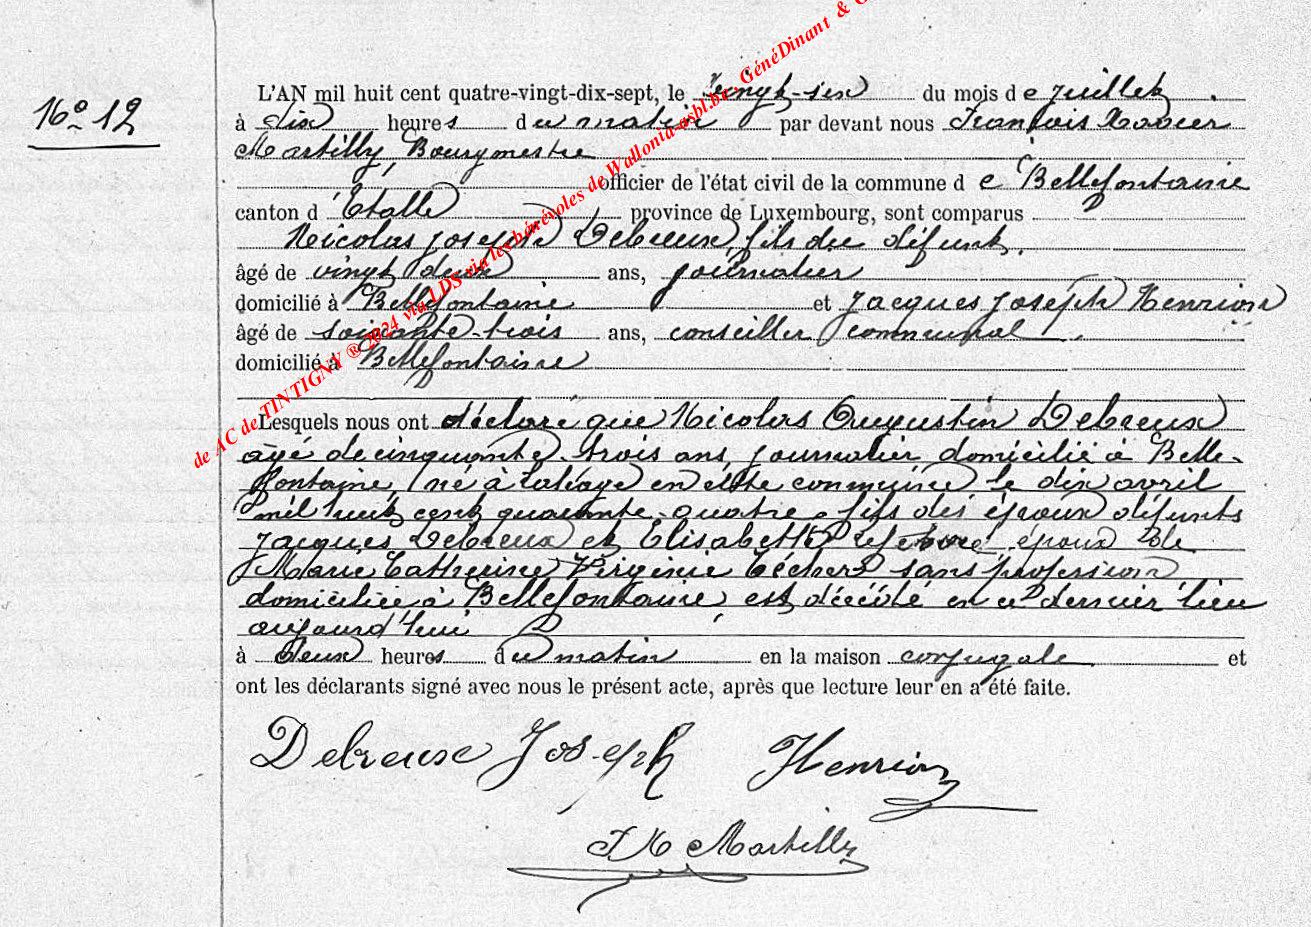 No 12
L'AN mil huit cent quatre-vingt-dix-sept, le vingt-six du mois de juillet.
à dix heures du matin par devant nous François Xavier
Martilly, Bourgmestre
officier de l'état civil de la commune de Bellefontaine
canton d'Etalle province de Luxembourg, sont comparus
Nicolas Joseph Debreux, fils du défunt,
âgé de vingt deux ans, journalier
domicilié à Bellefontaine et Jacques Joseph Henrion
âgé de soixante-trois ans, conseiller communal,
domicilié à Bellefontaine
Lesquels nous ont déclaré que Nicolas Augustin Debreux
âgé de cinquante-trois ans, journalier domicilié à Belle-
fontaine, né à Lahage en cette commune le dix avril
mil huit cent quarante-quatre, fils des époux défunts
Jacques Debreux et Elisabeth Lefebvre époux de
Marie Catherine Virginie sans profession
domiciliée à Bellefontaine est décédé en ce dernier lieu
aujourd'hui
à deux heures du matin en la maison conjugale et
ont les déclarants signé avec nous le présent acte, après que lecture leur en a été faite.
Debreux Joseph Henrion
FX Martilly
de AC de TINTIGNY ® 2024 via LDS via les bénévoles de Wallonia-asbl.be, GénéDinant &